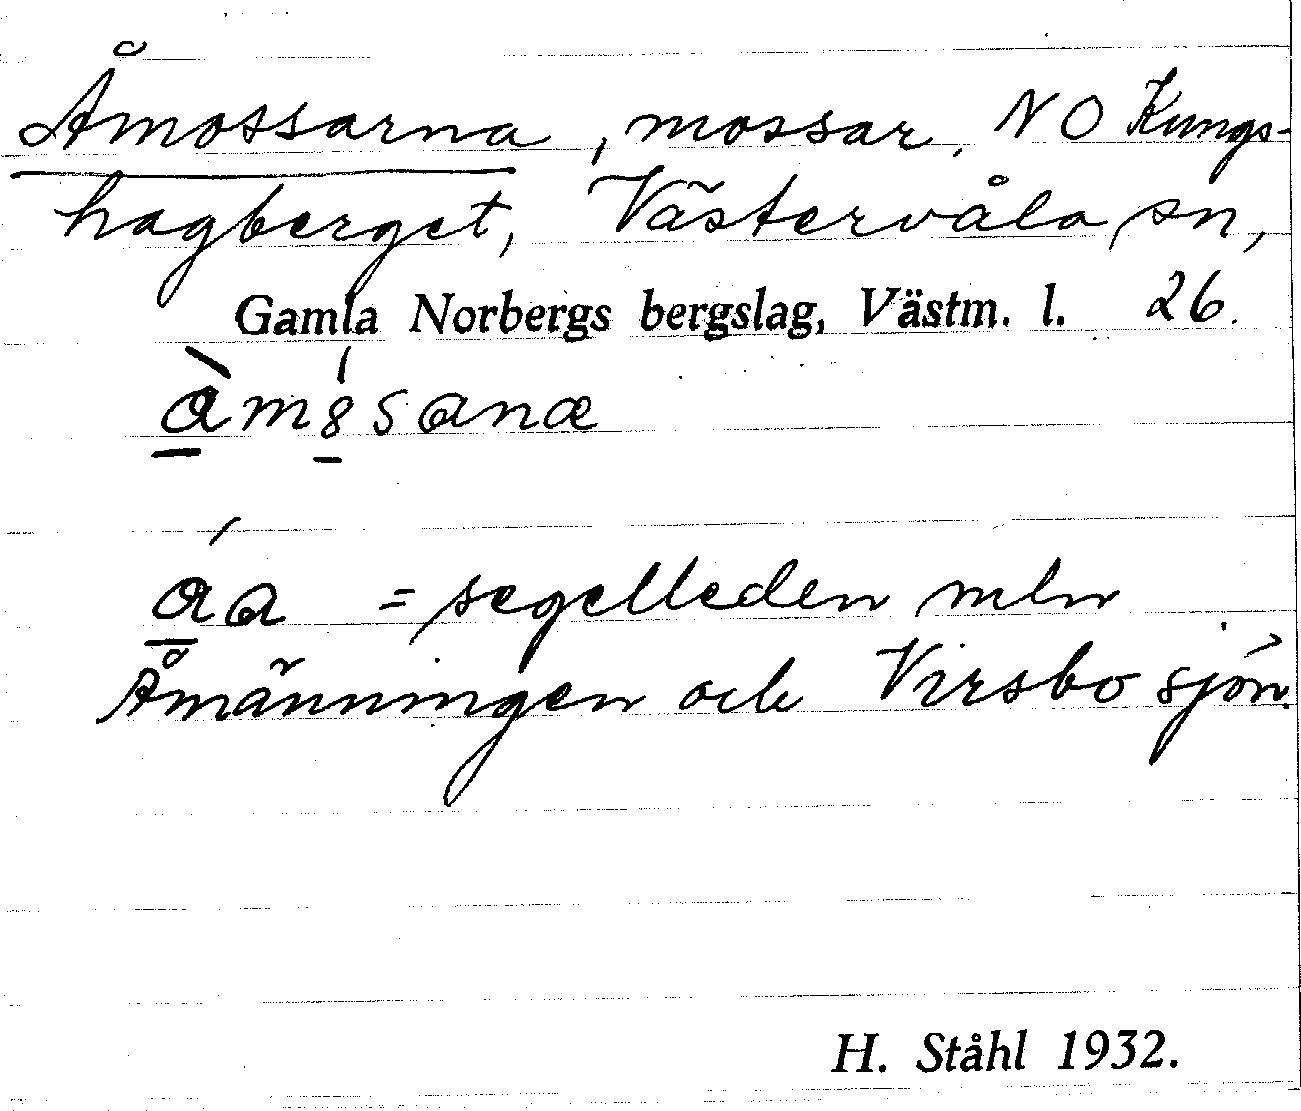 Åmossarna, mossar, NO Kungs-
hagberget, Västervåla sn,
Gamla Norbergs bergslag, Västm. l. 26.
= segelleden mln
Åmänningen och Virsbosjön.
H. Ståhl 1932.